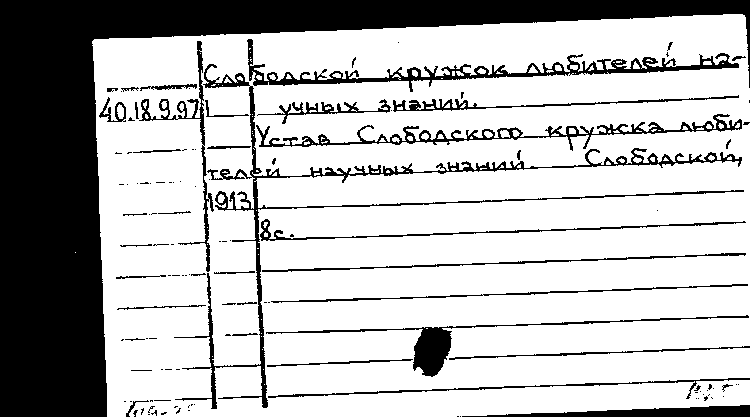 Слободской кружок любителей на-
40.18.9.97 учных знаний.
Устав Слободского кружка люби-
телей научных знаний. Слободской,
1913.
8с.